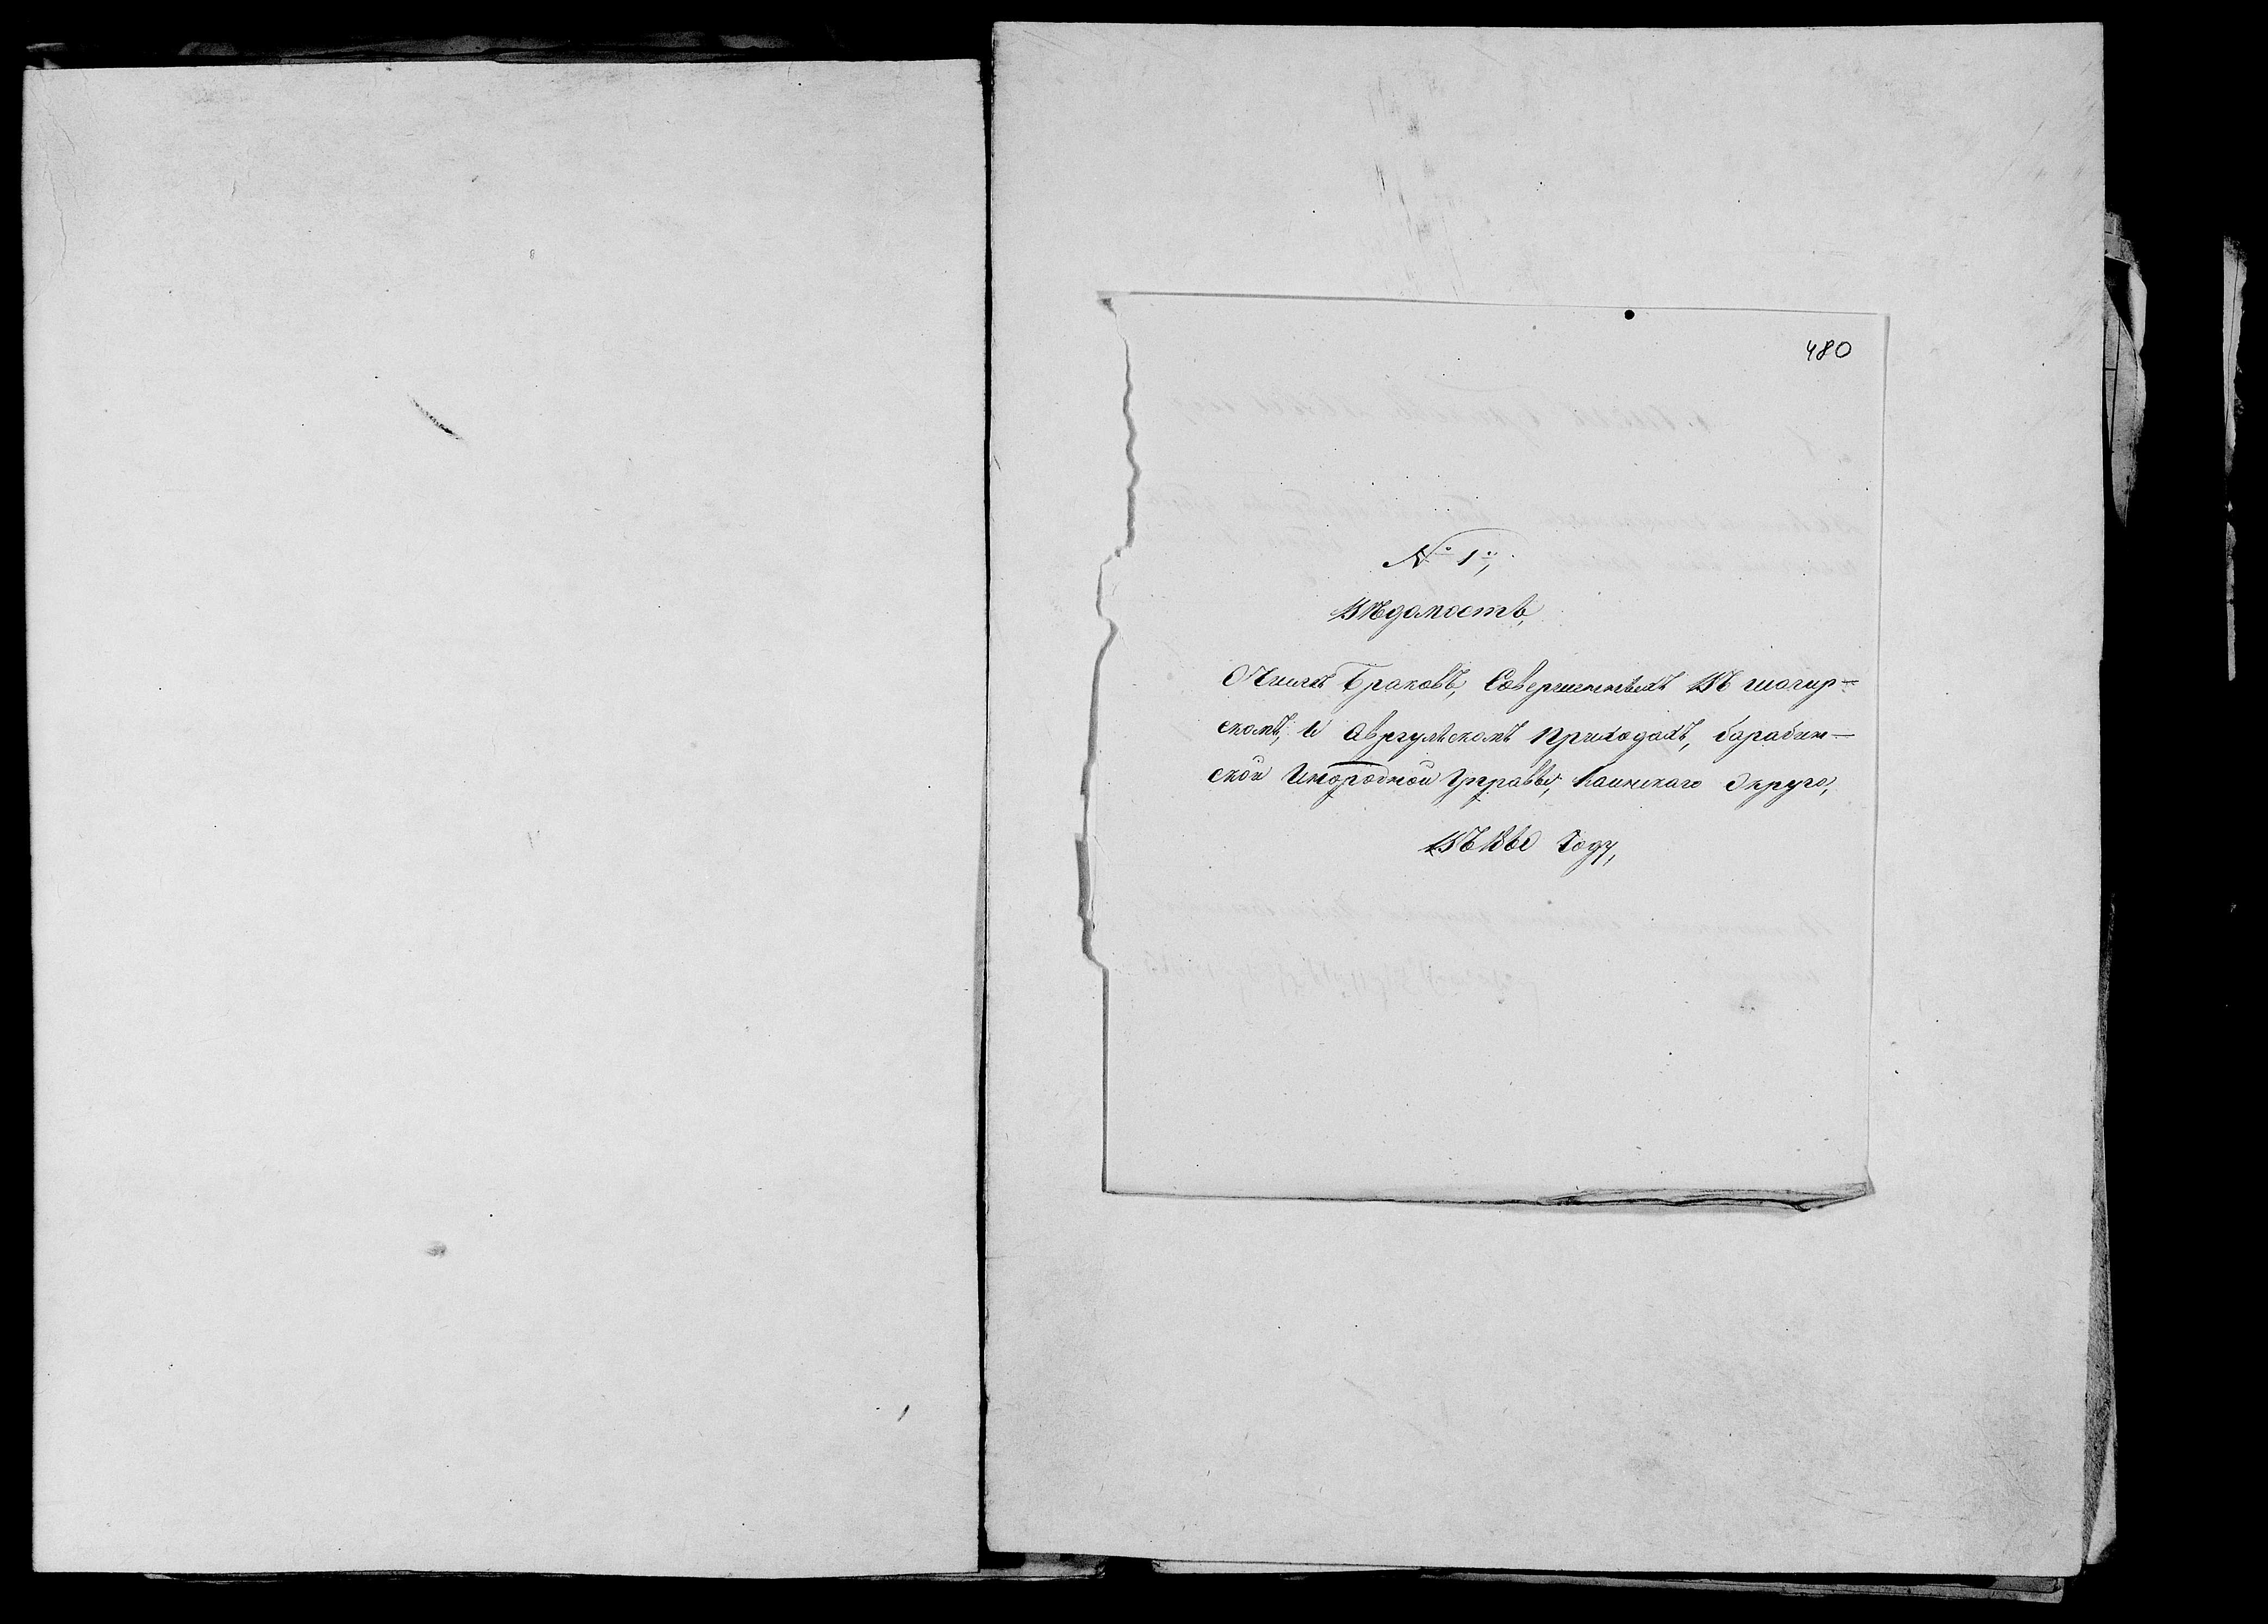 480
№ 1й,
Вѣдомость,
О числѣ Браковъ, Совершенныхъ Въ
скомъ, и Авргульскомъ приходахъ, барабин-
ской Инородной Управы, Каинскаго Округа,
Въ Году,